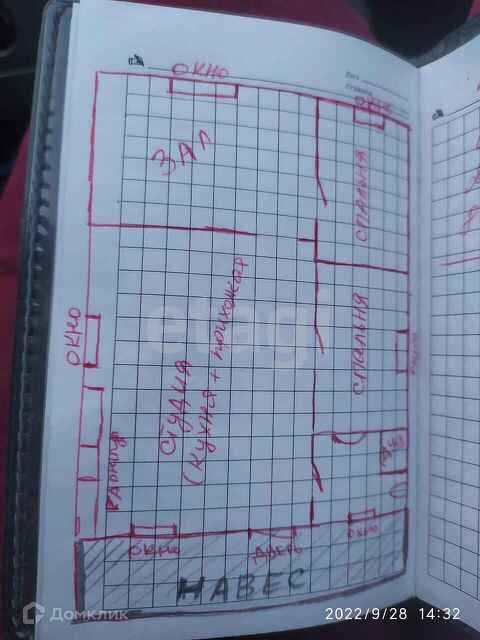 ОКНО
ОКНО
ЗАЛ
СПАЛЬНЯ
ОКНО
СТУДИЯ
(КУХНЯ + прихожая
СПАЛЬНЯ
etagi
ОКНО
ДВЕРЬ
ОКНО
НАВЕС
Домклик
2022/9/28 14:32